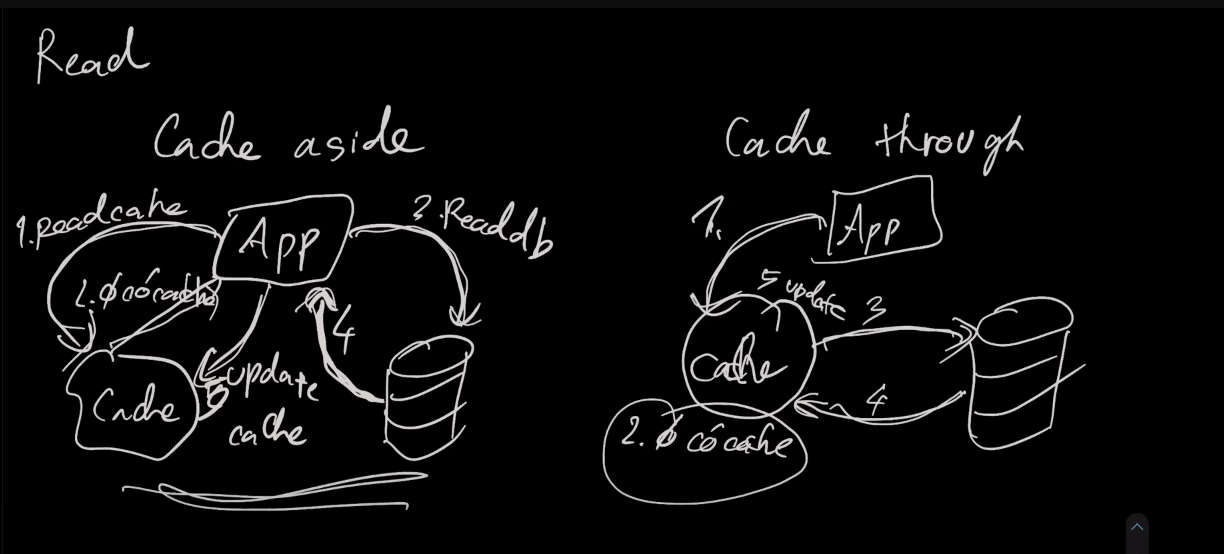 Read
Cache aside
1. Read cahe
App
3. Read db
2. ∅ có cache
4
5 update
cache
Cache
Cache through
1.
App
5 update
3
Cache
4
2. ∅ có cache